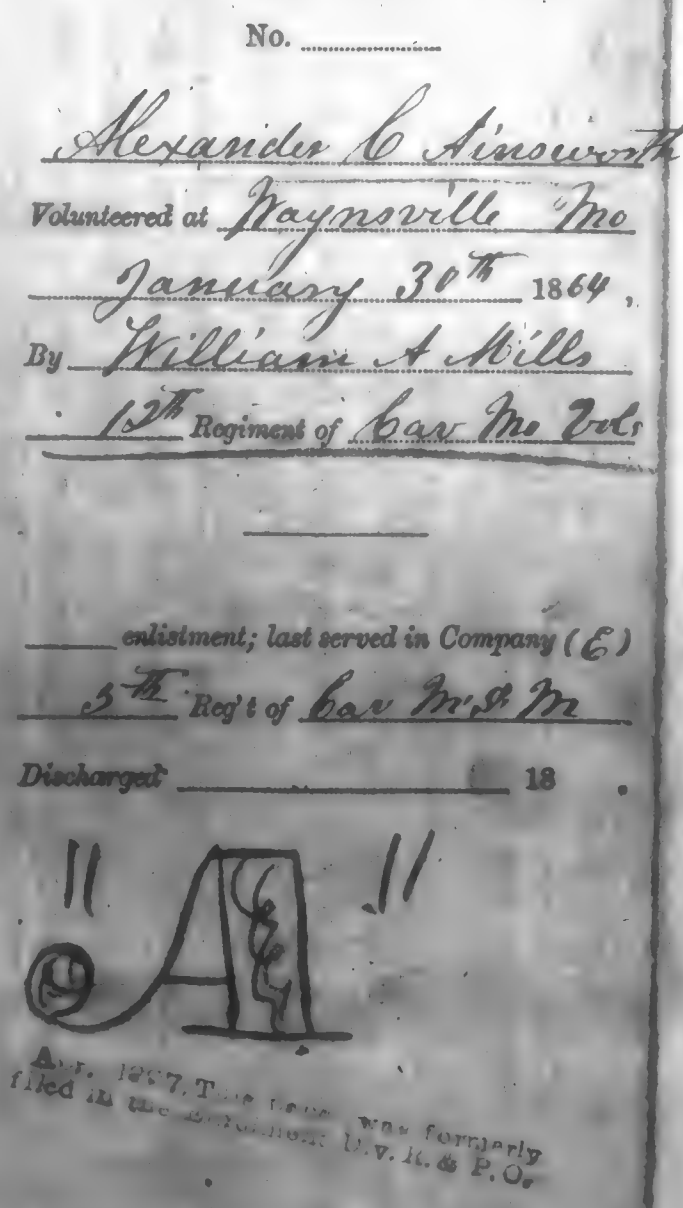 No.
Alexander C Ainsworth
Volunteered at Waynsville Mo
January 30th 1864,
By William A Mills
12th Regiment of Cav Mo Vols
enlistment; last served in Company (E)
5th Reg't of Cav M. S. M
Discharged 18 .
" A "
Apr. 1887. This was formerly
filed in the Enrolment Div. R. & P. O.